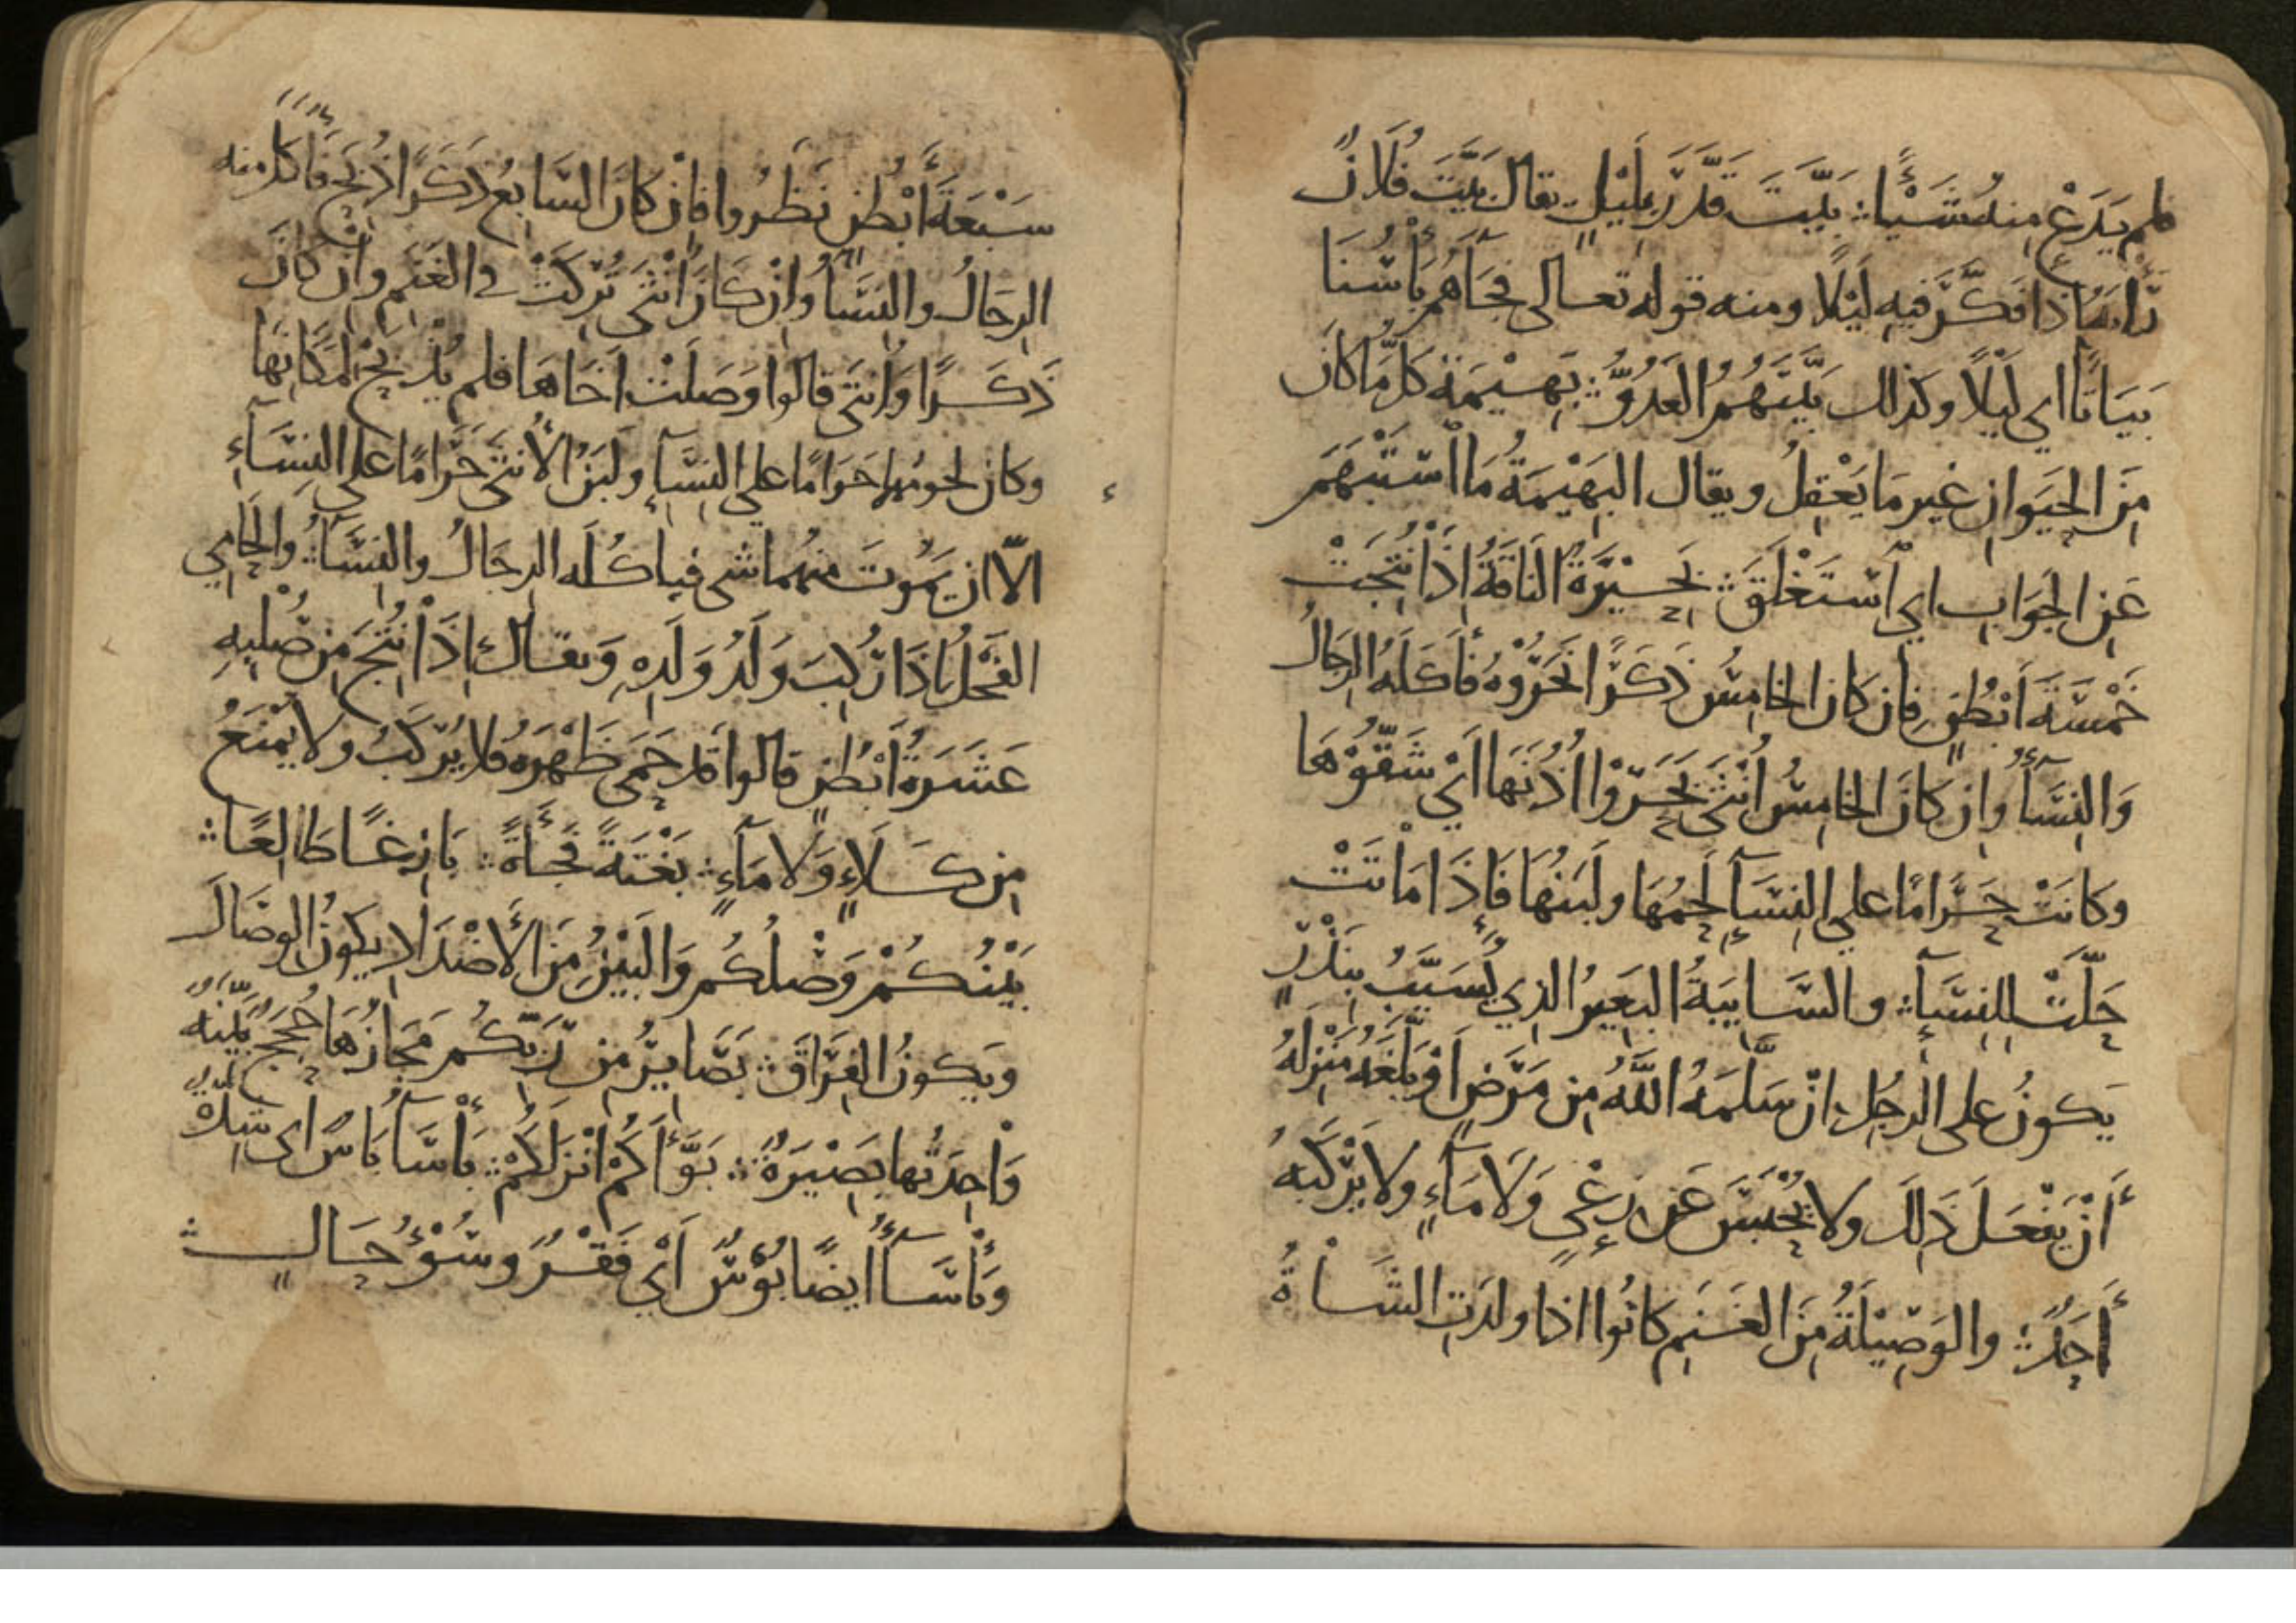 لم يَدَعْ مِنهُ شَيْئًا ۞ بَيَّتَ قَدَّرَ بِلَيْلٍ يقال بَيَّتَ فُلَانٌ
رَأيَهُ إذَا فَكَّرَ فيهِ لَيْلًا ومنه قوله تعالى فجَآءَهُم بَأْسُنَا
بَيَاتًا اي لَيْلًا وكذلك بَيَّتَهُمُ العَدُوُّ ۞ بَهِيْمَة كل مَا كانَ
مِنَ الحَيَوانِ غير مَا يَعْقِلُ ويقال البَهِيْمَةُ مَا اسْتَبْهَمَ
عَنِ الجَوَابِ اي اَسْتَغْلَقَ ۞ بَحِيْرَةٌ النَاقَةُ اِذَا نُتِجَتْ
خَمْسَةَ اَبْطُنٍ فإن كَانَ الخامِسُ ذَكَرًا نَحَرُوْهُ فأَكَلَهُ الرِجَالُ
وَالنِسَآءُ وإن كَانَ الخامِسُ اُنْثَى بَحَرُوْا اُذُنَهَا اَيْ شَقّوُْهَا
وكانَتْ حَرَامًا على النِسَآءِ لَحمُهَا ولَبَنُهَا فَإِذَا مَاتَتْ
حَلّتْ لِلنِسَآءِ ۞ والسَّايِبَةُ البَعِيرُ الذِي يُسَيَّبُ بِنَذْرٍ
يَكونُ على الرجُلِ انْ سَلَّمَهُ اللَّهُ مِن مَرَضٍ اَوْ بَلَّغَهُ مَنْزِلَهُ
أَنْ يَفْعَلَ ذَلِكَ ولا يُحْبَسَ عَن رِعْيٍ وَلَا مَآءٍ ولا يَرْكَبهُ
أَحَدٌ ۞ والوَصِيْلَةُ مِنَ الغَنَمِ كانُوا اذا ولدَتِ الشَاةُ
سَبْعَةَ أَبْطُنٍ نَظَرُوا فإنْ كانَ السَّابعُ ذَكَرًا ذُبِحَ فَأَكل منه
الرِجَالُ والنِسَآءُ وإنْ كَانَ اُنْثَى تُرِكَتْ في الغَنَمِ وإنْ كَانَ
ذَكَرًا وَاُنثَى قالوا وَصَلَتْ اَخَاهَا فلم يُذْبَحْ لِمَكَانِهَا
وكان لحومُها حَرَامًا على النِسَآءِ ولَبَنُ الأُنثَى حَرَامًا على النِسَآءِ
الّا ان يَمُوتَ منهُما شى فياكُلَه الرِجَالُ والنِسَآءُ ۞ وَالحَامِي
الفَحْلُ اِذَا رُكِبَ وَلَدُ وَلَدِهِ وَيقال اِذَا نُتِجَ مِن صُلْبِهِ
عَشَرَةُ أَبْطُنٍ قالوا قَد حَمَى ظَهْرَهُ فلا يُرْكَبُ ولا يُمْنَعُ
مِن كَلَاءٍ وَلَا مَآءٍ ۞ بَغْتَةً فَجْأَةً ۞ بَازِغًا طَالِعًا ۞
بَيْنُكُمْ وَصْلُكُم وَالبَيْنُ مِنَ الأَضْدَادِ يَكونُ الوصَالَ
ويَكونُ الفِرَاقَ ۞ بَصَايِرُ مِن رَبِّكُم مَجَازُهَا حُجَجٌ بَيِّنَةٌ
وَاحِدَتُها بَصِيْرَةٌ ۞ بَوَّأَكُمْ اَنْزَلَكُمْ ۞ بَأْسَآءُ بَاسٌ اى شِدّةٌ
وَبَأْسَآءُ ايضًا بُؤْسٌ اَيْ فَقْرٌ وسُوْءُ حَالٍ ۞